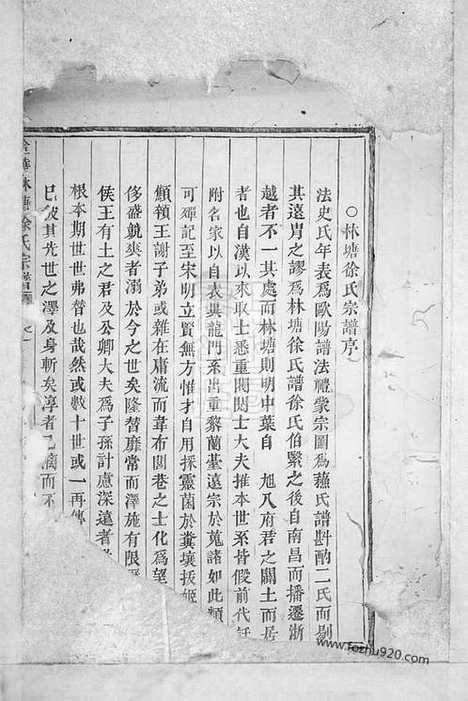 ○林塘徐氏宗譜序
法史氏年表為歐陽譜法禮家宗圖為蘇氏譜斟酌二氏而剔
其遠胄之謬為林塘徐氏譜徐氏伯緊之後自南昌而播遷浙
越者不一其處而林塘則明中葉自 旭八府君之闢土而居
者也自漢以來取士悉重閥閱士大夫推本世系皆假前代
附名家以自表異龍門系出重黎蘭臺遠宗於莵諸如此類
可殫記至宋明立賢無方惟才自用採靈菌於糞壤拔姬
顦顇王謝子弟或雜在庸流而韋布閭巷之士化為望
侈盛觀爽者溺於今之世矣隆替靡常而澤施有限
侯王有土之君及公卿大夫為子孫計慮深遠者
根本期世世弗替也哉然或數十世或一再傳
已被其先世之澤及身斬矣淳者 滴而不
金華林塘徐氏宗譜 卷一
www.fozhu920.com